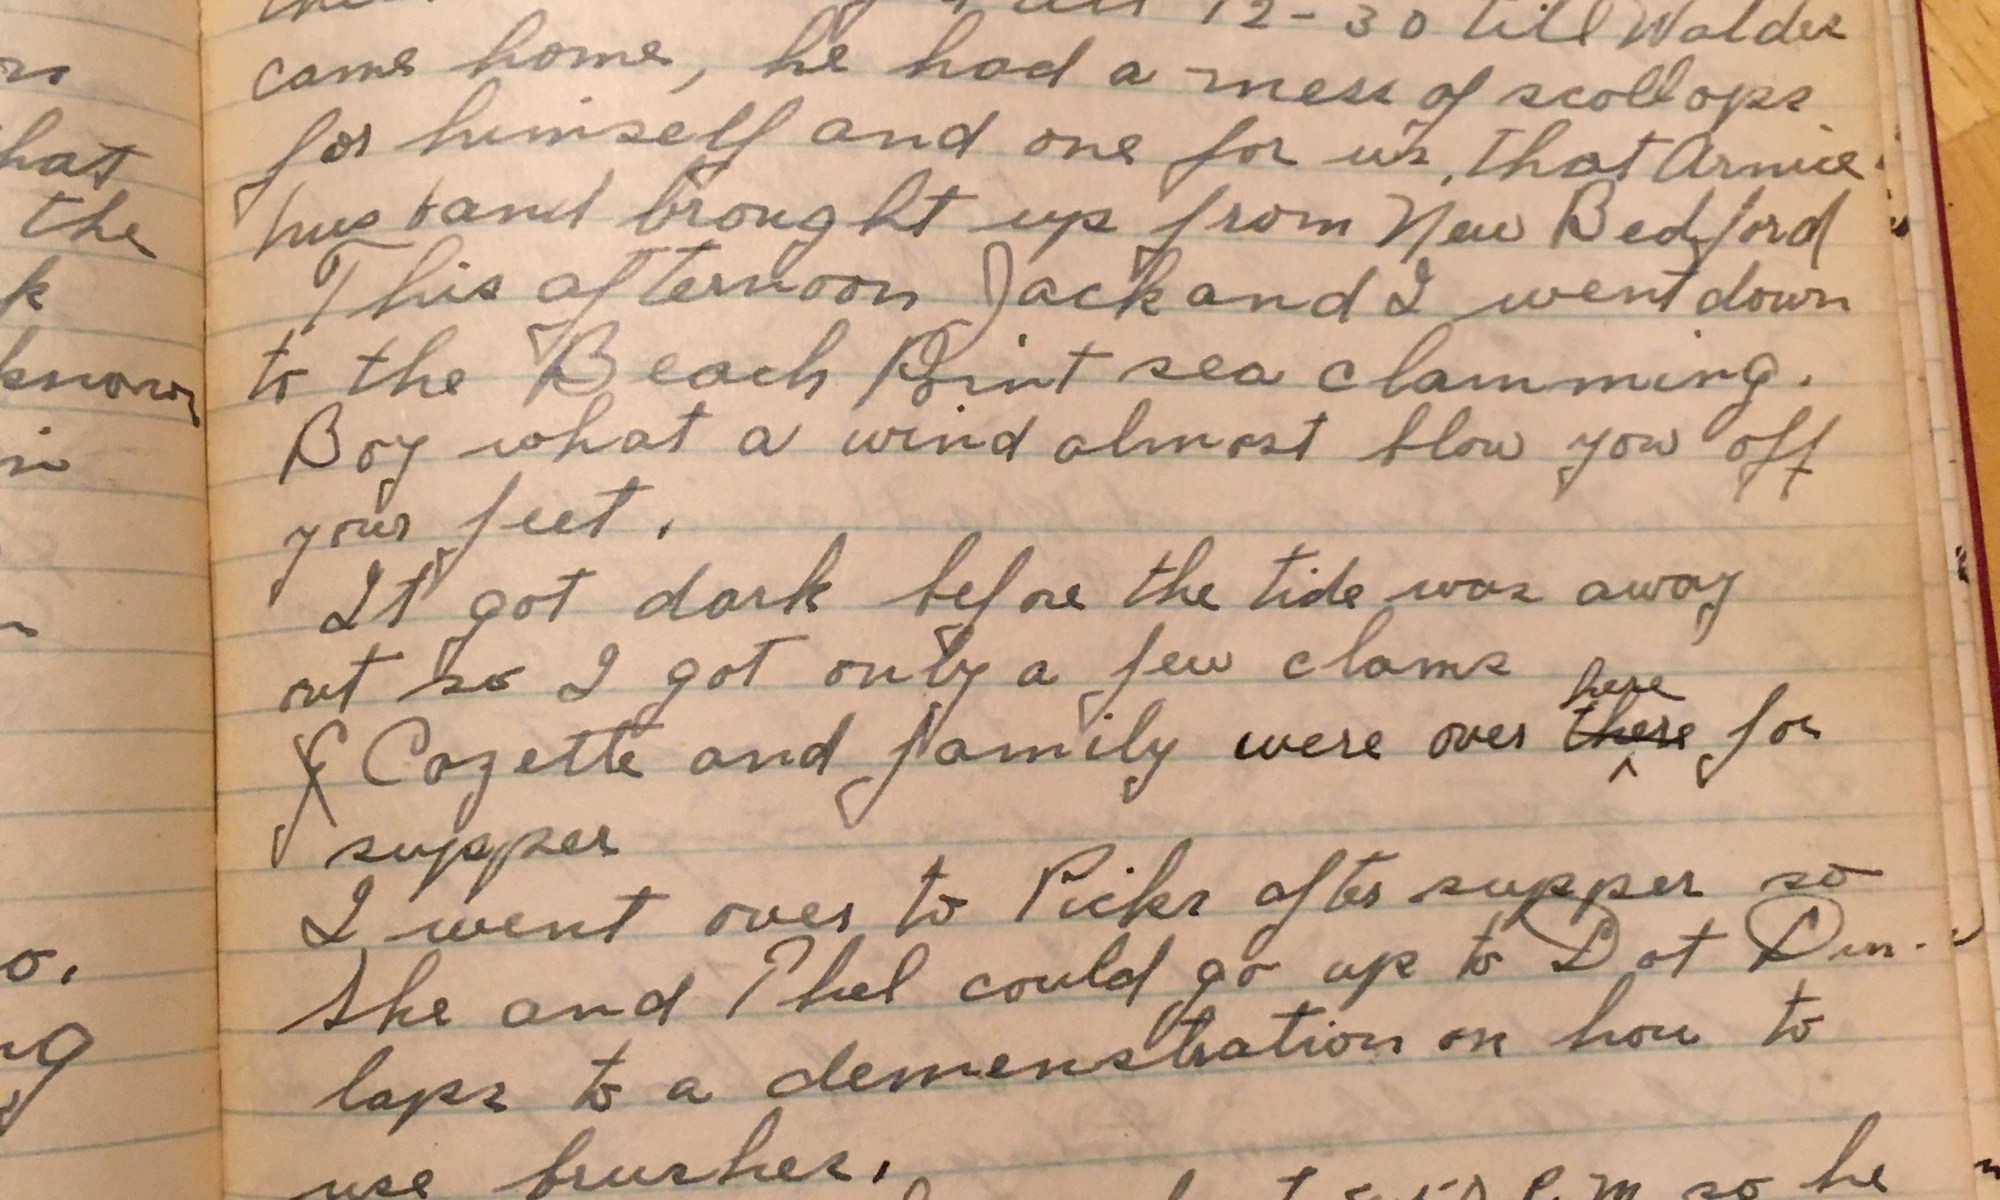 12-30 till Walder
came home, he had a mess of scollops
for himself and one for us, that Armie
husband brought up from New Bedford
This afternoon Jack and I went down
to the Beach Point sea clamming.
Boy what a wind almost blow you off
your feet.
It got dark before the tide was away
out so I got only a few clams
Cozette and family were over there here for
supper
I went over to Picks after supper so
she and Phel could go up to Dot Dun-
laps to a demenstration on how to
use brushes.
P.M. so he
hat
the
k
know
in